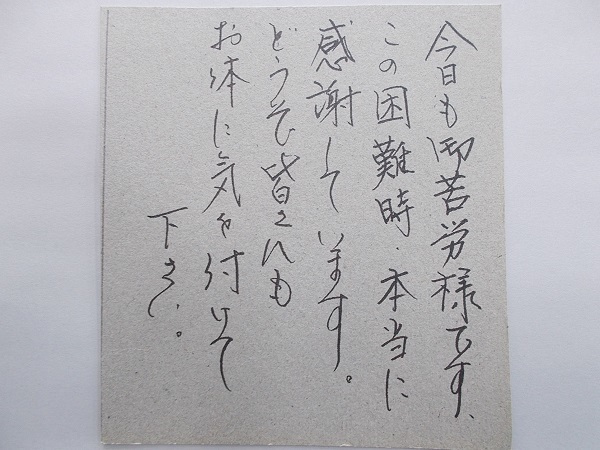 今日も御苦労様です、
この困難時、本当に
感謝しています。
どうぞ皆さんも
お体に気を付けて
下さい。